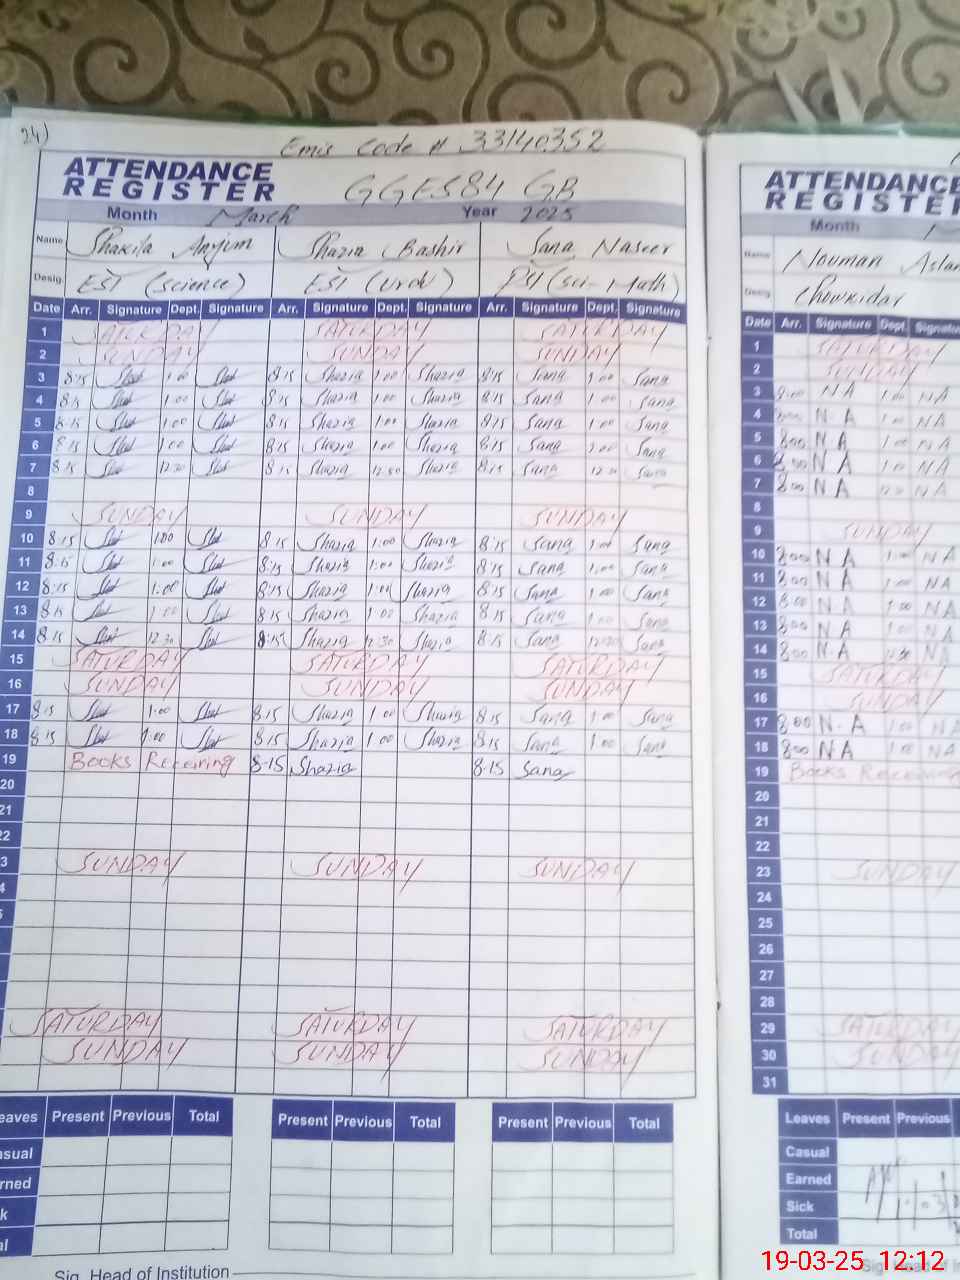 24)
Emis Code # 33140352
ATTENDANCE REGISTER GGES 84 GB
Month March Year 2025
Name Shakila Anjum Shazia Bashir Sana Naseer
Desig. EST (science) EST (Urdu) (Sci-Math)
Date Arr. Signature Dept. Signature Arr. Signature Dept. Signature Arr. Signature Dept. Signature
1 SATURDAY SATURDAY SATURDAY
2 SUNDAY SUNDAY SUNDAY
3 8:15 1:00 8:15 Shazia 1:00 Shazia 8:15 Sana 1:00 Sana
4 8:15 1:00 8:15 Shazia 1:00 Shazia 8:15 Sana 1:00 Sana
5 8:15 1:00 8:15 Shazia 1:00 Shazia 8:15 Sana 1:00 Sana
6 8:15 1:00 8:15 Shazia 1:00 Shazia 8:15 Sana 1:00 Sana
7 8:15 12:30 8:15 Shazia 12:30 Shazia 8:15 Sana 12:30 Sana
8
9 SUNDAY SUNDAY SUNDAY
10 8:15 1:00 8:15 Shazia 1:00 Shazia 8:15 Sana 1:00 Sana
11 8:15 1:00 8:15 Shazia 1:00 Shazia 8:15 Sana 1:00 Sana
12 8:15 1:00 8:15 Shazia 1:00 Shazia 8:15 Sana 1:00 Sana
13 8:15 1:00 8:15 Shazia 1:00 Shazia 8:15 Sana 1:00 Sana
14 8:15 12:30 8:15 Shazia 12:30 Shazia 8:15 Sana 12:30 Sana
15 SATURDAY SATURDAY SATURDAY
16 SUNDAY SUNDAY SUNDAY
17 8:15 1:00 8:15 Shazia 1:00 Shazia 8:15 Sana 1:00 Sana
18 8:15 1:00 8:15 Shazia 1:00 Shazia 8:15 Sana 1:00 Sana
19 Books Receiving 8:15 Shazia 8:15 Sana
20
21
22
3 SUNDAY SUNDAY SUNDAY
4
SATURDAY SATURDAY SATURDAY
SUNDAY SUNDAY SUNDAY
eaves Present Previous Total Present Previous Total Present Previous Total
asual
rned
k
al
Sig. Head of Institution
ATTENDANCE
REGISTER
Month
Name Nouman Aslam
Desig. Chowkidar
Date Arr. Signature Dept. Signature
1 SATURDAY
2 SUNDAY
3 8:00 NA 1:00 NA
4 8:00 NA 1:00 NA
5 8:00 NA 1:00 NA
6 8:00 NA 1:00 NA
7 8:00 NA 12:30 NA
8
9 SUNDAY
10 8:00 NA 1:00 NA
11 8:00 NA 1:00 NA
12 8:00 NA 1:00 NA
13 8:00 NA 1:00 NA
14 8:00 NA 12:30 NA
15 SATURDAY
16 SUNDAY
17 8:00 NA 1:00 NA
18 8:00 NA 1:00 NA
19 Books Receiving
20
21
22
23 SUNDAY
24
25
26
27
28
29 SATURDAY
30 SUNDAY
31
Leaves Present Previous
Casual
Earned
Sick
Total
Sig. Head of In
19-03-25 12:12